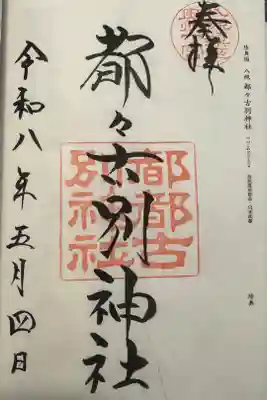 奉拝
都々古別神社
都都古
別神社
令和八年五月四日
八槻 都々古別神社